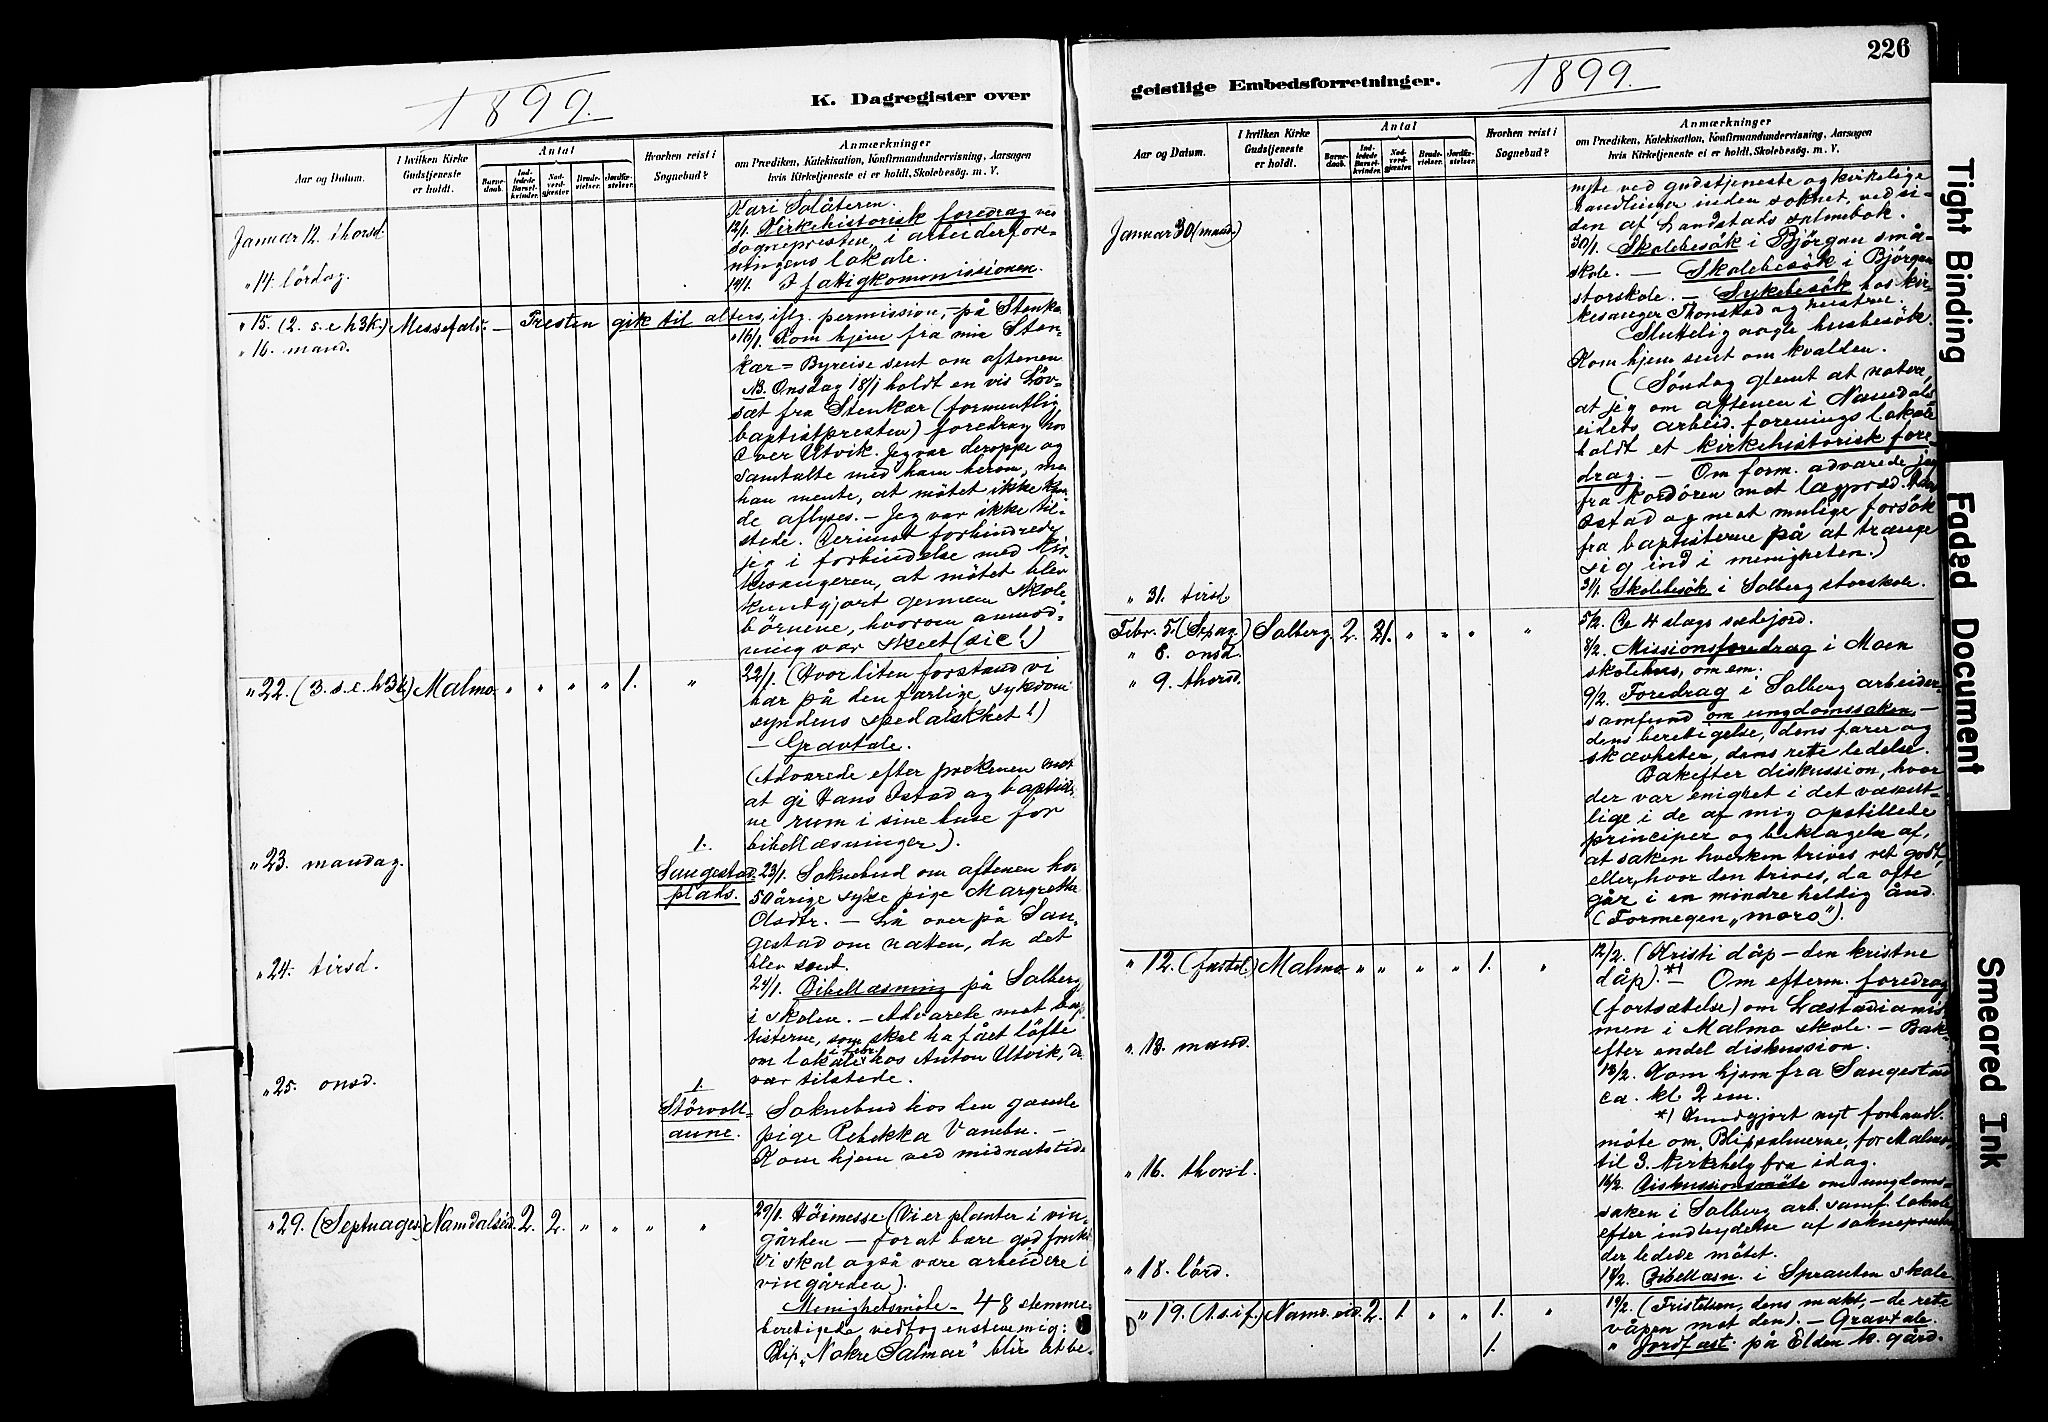 1899.
K. Dagregister over
Aar og Datum.
I hvilken Kirke Gudstjeneste er holdt.
Antal
Barnedaab.
Indledede Barselkvinder.
Nadverdgjester
Brudevielser.
Jordfæstelser.
Hvorhen reist i Sognebud?
Anmærkninger
om Prædiken, Katekisation, Konfirmandundervisning, Aarsagen
hvis Kirketjeneste ei er holdt, Skolebesøg. m. V.
Kari Solåteren.
Januar 12. thorsd. 12/1. Kirkehistorisk foredrag ved
sognepresten i arbeiderfore-
ningens lokale.
" 14. lördag. 14/1. I fattigkommissionen.
" 15. (2. s. e. h3k.) Messefald. — Presten gik til alters, iflg. permission, — på Stenkær
" 16. mand. 16/1. Kom hjem fra min Sten-
kær = Byreise sent om aftenen
NB. Onsdag 18/1 holdt en vis Löv-
sæt fra Stenkær (formentlig
baptistpresten) foredrag hos
Iver Utvik. Jeg var deroppe og
samtalte med ham herom, men
han mente, at mötet ikke kun-
de aflyses. — Jeg var ikke til-
stede. Derimot forhindrede
jeg i forbindelse med kir-
kesangeren, at mötet blev
kundgjort gennem skole-
börnene, hvorom anmod-
ning var skeet (sic!)
" 22. (3. s. e. h3k) Malmo. " " " " 1. " 22/1. (Hvor liten forstand vi
har på den farlige sykdom
syndens spedalskhet!)
— Gravtale.
(Advarede efter prækenen mot
at gi Hans Østad og baptister-
ne rum i sine huse for
1. bibellæsninger).
" 23. mandag. Sangestad- 23/1. Soknebud om aftenen hos
plads. 50 årige syke pige Margrethe
Olsdtr. — Lå over på San-
gestad om natten, da det
blev sent.
" 24. tirsd. 24/1. Bibellæsning på Solberg
i skolen. — Advarede mot bap-
tisterne, som skal ha fået löfte
om lokale i febr. hos Anton Utvik, der
var tilstede.
" 25. onsd. 1.
Störvolt- Soknebud hos den gamle
aune. pige Rebekka Vanebu. —
Kom hjem ved midnatstide
" 29. (Septuages) Namdalseid. 2. 2. " " " " 29/1. Höimesse (Vi er planter i vin-
gården — for at bære god frukt.
Vi skal også være arbeidere i
vingården).
Menighetsmöte — 48 stemme-
berettigede vedtog enstemmig:
Blip. "Nokre Salmar" blir at be-
226
geistlige Embedsforretninger.
1899.
Aar og Datum.
I hvilken Kirke Gudstjeneste er holdt.
Antal
Barnedaab.
Indledede Barselkvinder.
Nadverdgjester
Brudevielser.
Jordfæstelser.
Hvorhen reist i Sognebud?
Anmærkninger
om Prædiken, Katekisation, Konfirmandundervisning, Aarsagen
hvis Kirketjeneste ei er holdt, Skolebesøg. m. V.
nytte ved gudstjeneste og kirkelige
handlinger inden soknet, ved si-
den af Landstads salmebok.
Januar 30 (mand.) 30/1. Skolebesök i Björgan små-
skole. — Skolebesök i Björgan
storskole. — Sykebesök hos kir-
kesanger Thonstad og hustru.
Sluttelig nogle husbesök.
Kom hjem sent om kvelden.
(Söndag glemt at notere,
at jeg om aftenen i Namdals-
eidets arbeid. forenings lokale
holdt et kirkehistorisk fore-
drag. — Om form. advarede jeg
fra kordören mot lægpræd. Hans
Østad og mot mulige forsök
fra baptisterne på at trænge
sig ind i menigheten.)
" 31. tirsd. 31/1. Skolebesök i Solberg storskole.
Febr. 5. (Sexag.) Solberg. 2. 21. " " " " 5/2. De 4 slags sædejord.
" 8. onsd. 8/2. Missionsforedrag i Moen
skolehus, om em.
" 9. thorsd. 9/2. Foredrag i Solberg arbeider-
samfund om ungdomssaken —
dens berettigelse, dens farer og
skævheter, dens rette ledelse.
Bakefter diskussion, hvor
der var enighet i det væsent-
lige i de af mig opstillede
principer og beklagelse af,
at saken hverken trives ret godt,
eller, hvor den trives, da ofte
går i en mindre heldig ånd.
(For megen "moro").
" 12. (fastel.) Malmo " " " " 1. " 12/2. (Kristi dåp — den kristne
dåp). *) — Om efterm. foredrag
(fortsættelse) om Læstadianis-
men i Malmo skole. — Bak-
efter endel diskussion.
" 13. mand. 13/2. Kom hjem fra Sangestad
ca. kl. 2 em.
*) Kundgjort nyt forhandl.
möte om Blipsalmerne, for Malmo,
til 3. kirkehelg fra idag.
" 16. thorsd. 16/2. Diskussionsmöte om ungdoms-
saken i Solberg arb. samf. lokale
efter indbydelse af soknepresten
der ledede mötet.
" 18. lörd. 18/2. Bibellæsn. i Sprauten skole
" 19. (1. s. i f.) Namd. eid. 2. 1. " " 1. " 19/2. (Fristelsen, dens makt, — de rette
våpen mot den). — Gravtale.
1. " Jordfæst. på Elden k. gård.
Tight Binding
Faded Document
Smeared Ink